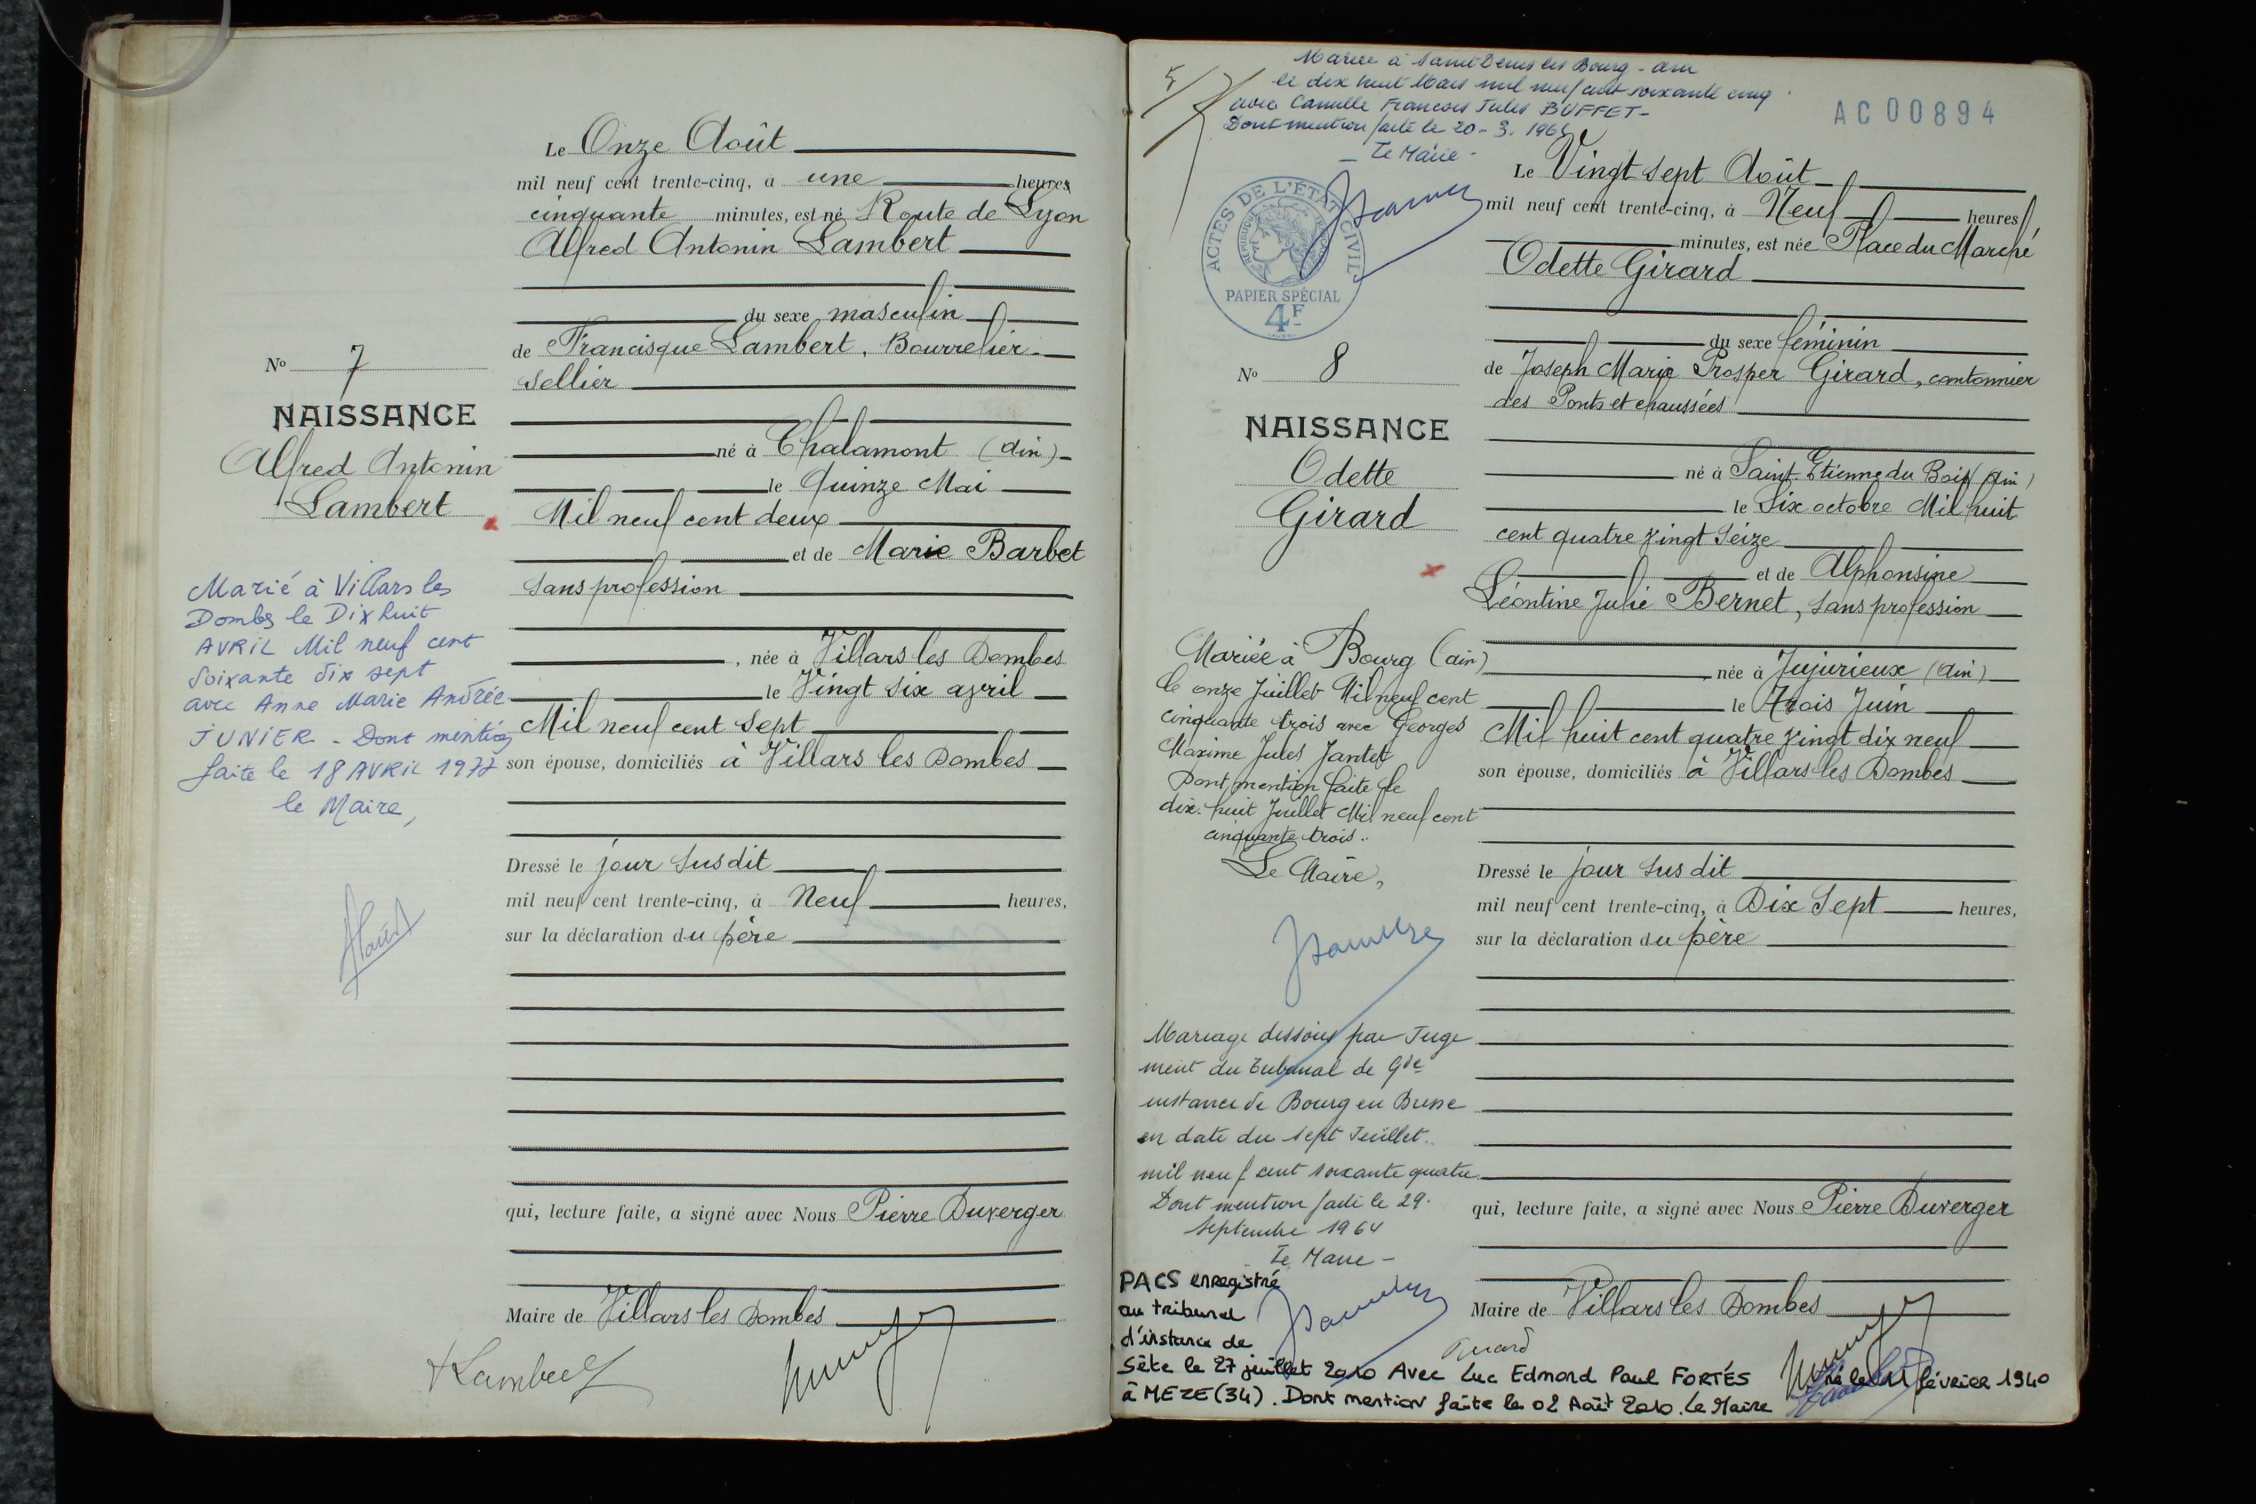 Le Onze Août
mil neuf cent trente-cinq, à une heures
cinquante minutes, est né Route de Lyon
Alfred Antonin Lambert
du sexe masculin
de Francisque Lambert, Bourrelier-
Sellier
né à Chalamont (Ain)
le Quinze Mai
Mil neuf cent deux
et de Marie Barbet
sans profession
, née à Villars les Dombes
le Vingt six avril
Mil neuf cent sept
son épouse, domiciliés à Villars les Dombes
Dressé le jour susdit
mil neuf cent trente-cinq, à Neuf heures,
sur la déclaration du père
qui, lecture faite, a signé avec Nous Pierre Duverger
Maire de Villars les Dombes
No 7
NAISSANCE
Alfred Antonin
Lambert
Marié à Villars les
Dombes le Dix huit
AVRIL Mil neuf cent
Soixante dix sept
avec Anne Marie Andrée
JUNIER - Dont mention
faite le 18 AVRIL 1977
le Maire,
Lambert
Mariée à Saint Denis les Bourg - Ain
le dix huit Mars mil neuf cent soixante cinq
avec Camille Francois Jules BUFFET-
Dont mention faite le 20-3.1965
- Le Maire -
AC00894
ACTES DE L'ÉTAT CIVIL
PAPIER SPÉCIAL
4F
Le Vingt sept Août
mil neuf cent trente-cinq, à Neuf heures
minutes, est née Place du Marché
Odette Girard
du sexe féminin
de Joseph Marie Prosper Girard, cantonnier
des Ponts et chaussées
né à Saint-Etienne du Bois (Ain)
le Six octobre Mil huit
cent quatre vingt Seize
et de Alphonsine
Léontine Julie Bernet, sans profession
née à Jujurieux (Ain)
le Trois Juin
Mil huit cent quatre vingt dix neuf
son épouse, domiciliés à Villars les Dombes
Dressé le jour susdit
mil neuf cent trente-cinq, à Dix Sept heures,
sur la déclaration du père
qui, lecture faite, a signé avec Nous Pierre Duverger
Maire de Villars les Dombes
No 8
NAISSANCE
Odette
Girard
Mariée à Bourg (Ain)
le onze Juillet Mil neuf cent
cinquante trois avec Georges
Maxime Jules Jantet
Dont mention faite le
dix-huit Juillet Mil neuf cent
cinquante trois..
Le Maire,
Mariage dissous par Juge
ment du Tribunal de Gde
instance de Bourg en Bresse
en date du sept Juillet
mil neuf cent soixante quatre
Dont mention faite le 29.
Septembre 1964
Le Maire -
Girard
PACS enregistré
au tribunal
d'instance de
Sète le 27 juillet 2010 Avec Luc Edmond Paul FORTÉS né le 11 février 1940
à MEZE (34). Dont mention faite le 02 Août 2010. Le Maire